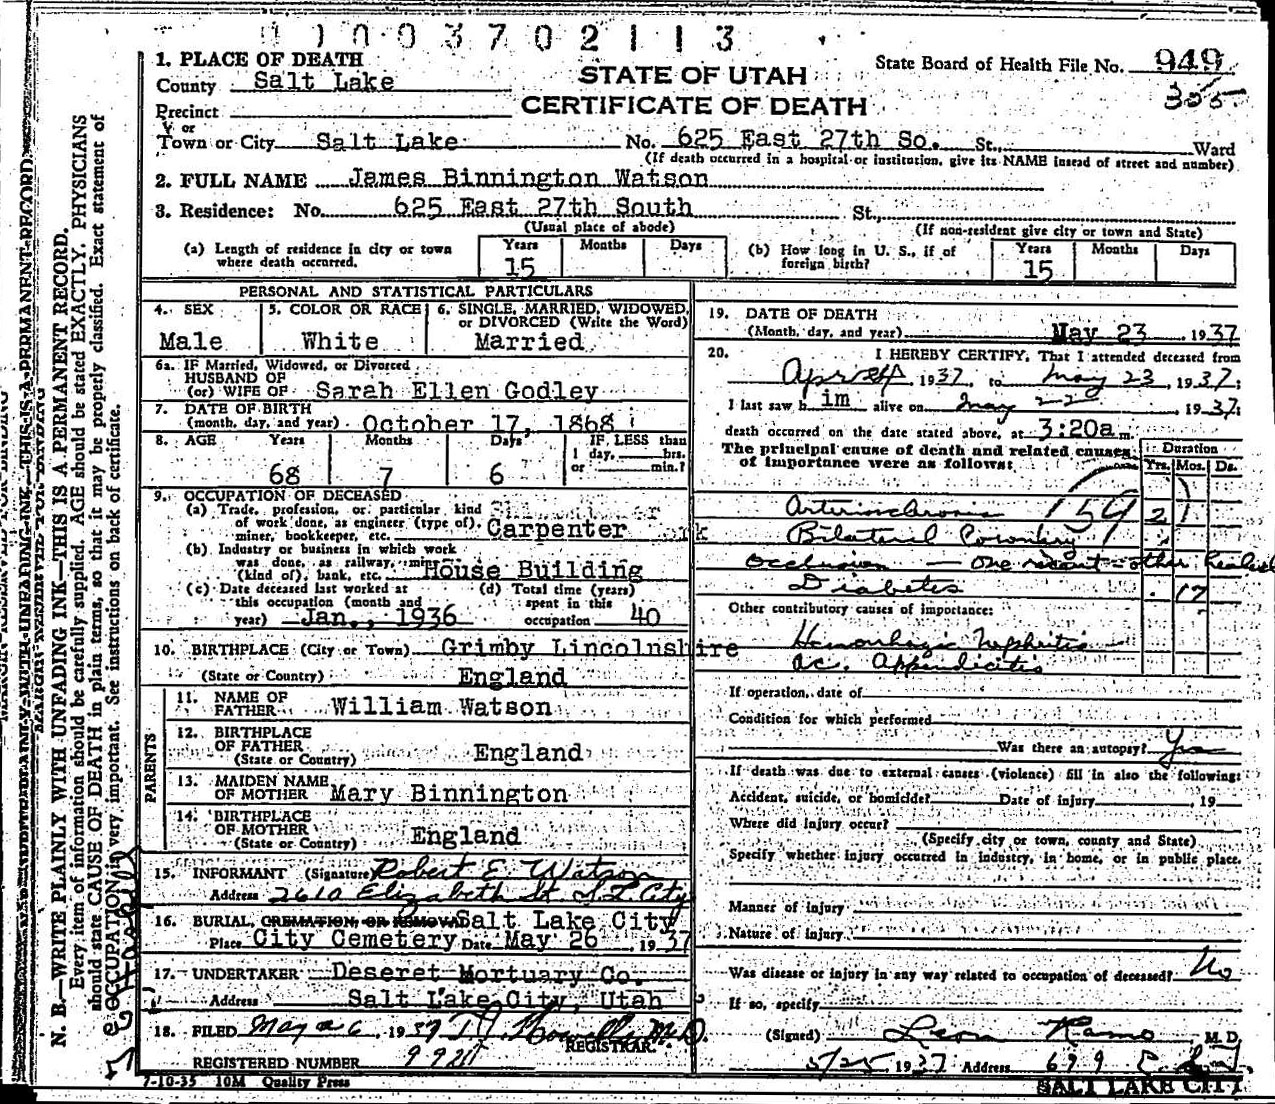 0 1 0 0 3 7 0 2 1 1 3
1. PLACE OF DEATH
County Salt Lake
STATE OF UTAH
CERTIFICATE OF DEATH
State Board of Health File No. 949
305
Precinct
or
Town or City Salt Lake No. 625 East 27th So. St., Ward
(If death occurred in a hospital or institution, give its NAME insead of street and number)
2. FULL NAME James Binnington Watson
3. Residence: No. 625 East 27th South St.,
(Usual place of abode) (If non-resident give city or town and State)
(a) Length of residence in city or town where death occurred. Years 15 Months Days
(b) How long in U. S., if of foreign birth? Years 15 Months Days
PERSONAL AND STATISTICAL PARTICULARS
4. SEX Male
5. COLOR OR RACE White
6. SINGLE, MARRIED, WIDOWED, or DIVORCED (Write the Word) Married
6a. IF Married, Widowed, or Divorced
HUSBAND OF
(or) WIFE OF Sarah Ellen Godley
7. DATE OF BIRTH
(month, day, and year) October 17, 1868
8. AGE Years 68 Months 7 Days 6 IF LESS than 1 day, hrs. or min.?
9. OCCUPATION OF DECEASED
(a) Trade, profession, or particular kind
of work done, as engineer (type of),
miner, bookkeeper, etc. Carpenter
(b) Industry or business in which work
was done, as railway, mine
(kind of), bank, etc. House Building
(c) Date deceased last worked at
this occupation (month and
year) Jan., 1936
(d) Total time (years)
spent in this
occupation 40
10. BIRTHPLACE (City or Town) Grimby Lincolnshire
(State or Country) England
PARENTS
11. NAME OF
FATHER William Watson
12. BIRTHPLACE
OF FATHER
(State or Country) England
13. MAIDEN NAME
OF MOTHER Mary Binnington
14. BIRTHPLACE
OF MOTHER
(State or Country) England
15. INFORMANT (Signature) Robert E. Watson
Address 2610 Elizabeth St. S.L. City
16. BURIAL, CREMATION, OR REMOVAL Salt Lake City
Place City Cemetery Date May 26, 1937
17. UNDERTAKER Deseret Mortuary Co.
Address Salt Lake City, Utah
18. FILED May 26 1937 M.D.
REGISTRAR.
REGISTERED NUMBER
7-10-35 10M Quality Press
19. DATE OF DEATH
(Month, day, and year) May 23 1937
20. I HEREBY CERTIFY, That I attended deceased from
1937, to May 23, 1937;
I last saw him alive on May 22 1937;
death occurred on the date stated above, at 3:20a m.
The principal cause of death and related causes
of importance were as follows:
Duration
Yrs. Mos. Ds.
Arteriosclerosis 159 2
Bilateral Coronary
Occlusion — one recent - other healed
Diabetes 17
Other contributory causes of importance:
Hemorrhagic Nephritis
ac. Appendicitis
If operation, date of
Condition for which performed
Was there an autopsy? Yes
If death was due to external causes (violence) fill in also the following:
Accident, suicide, or homicide? Date of injury , 19
Where did injury occur?
(Specify city or town, county and State)
Specify whether injury occurred in industry, in home, or in public place.
Manner of injury
Nature of injury
Was disease or injury in any way related to occupation of deceased? No
If so, specify
(Signed) Leon Ramo M. D.
5/25 1937 Address 699 E.
SALT LAKE CITY
N. B.—WRITE PLAINLY WITH UNFADING INK—THIS IS A PERMANENT RECORD.
Every item of information should be carefully supplied. AGE should be stated EXACTLY. PHYSICIANS
should state CAUSE OF DEATH in plain terms, so that it may be properly classified. Exact statement of
OCCUPATION is very important. See instructions on back of certificate.